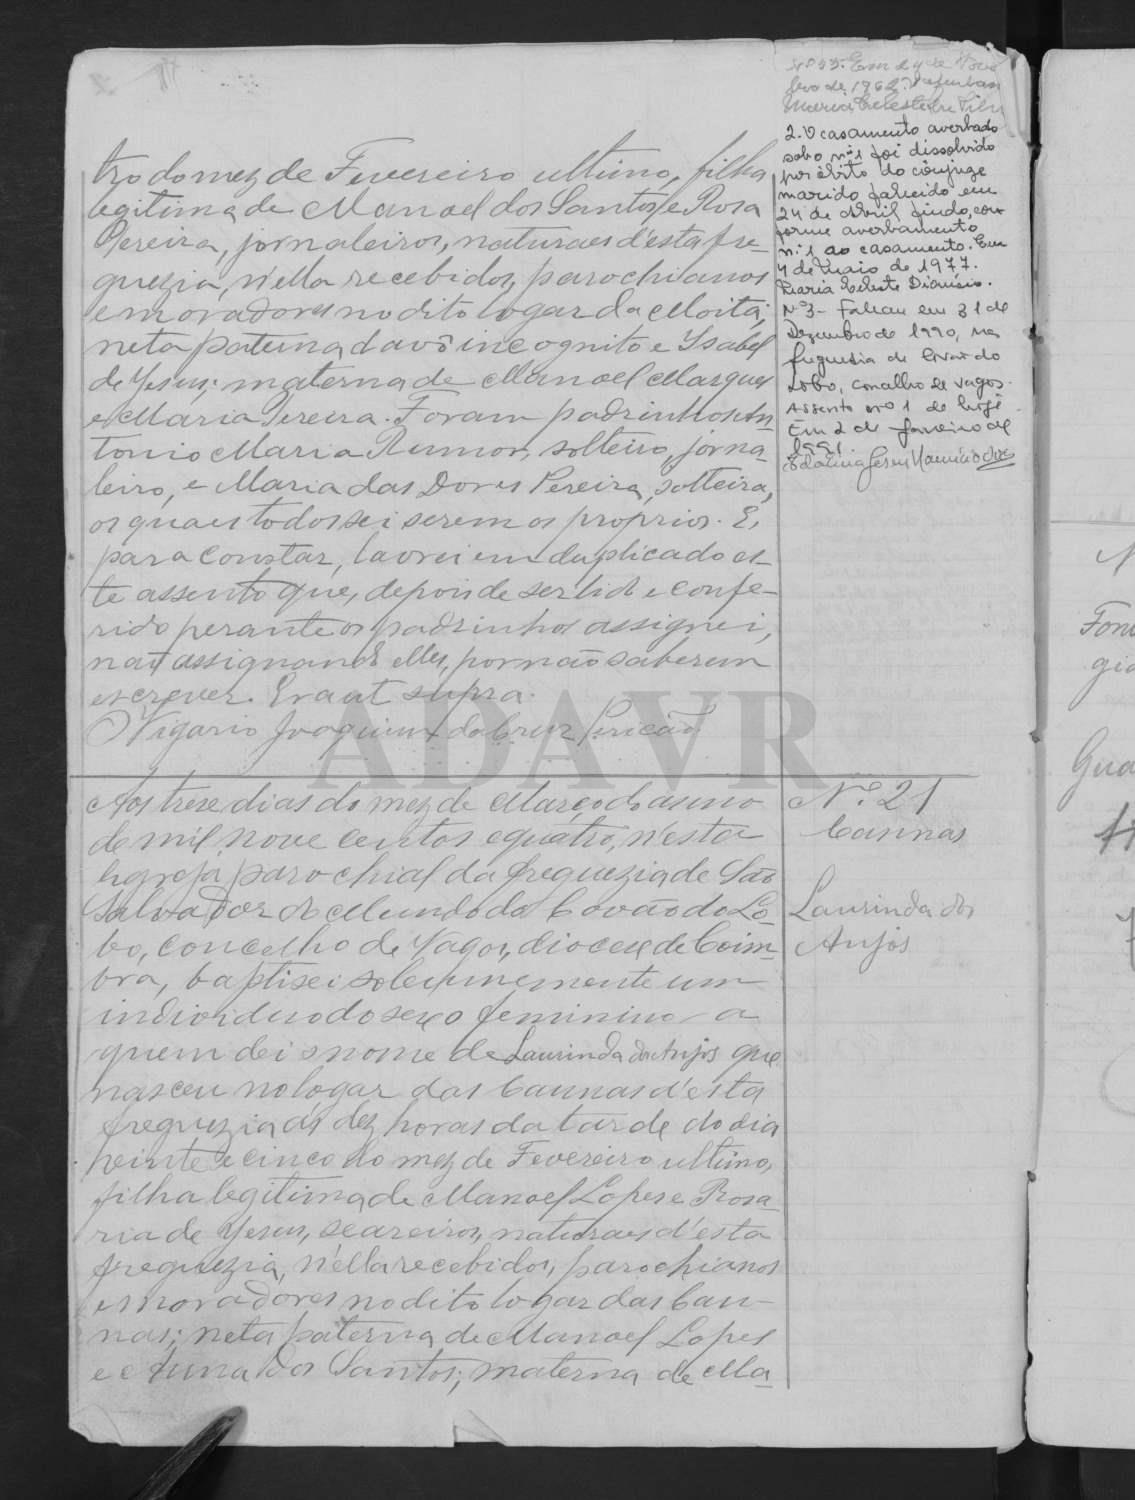 tro do mez de Fevereiro ultimo, filha
legitima de Manoel dos Santos e Rosa
Pereira, jornaleiros, naturaes d'esta fre-
guezia, n'ella recebidos, parochianos
e moradores no dito logar da Moita;
neta paterna d'avô incognito e Ysabel
de Jesus; materna de Manoel Marques
e Maria Pereira. Foram padrinhos An-
tonio Maria Rumor, solteiro, jorna-
leiro, e Maria das Dores Pereira, solteira,
os quaes todos sei serem os proprios. E,
para constar, lavrei em duplicado es-
te assento que, depois de ser lido e confe-
rido perante os padrinhos assignei,
não assignando elles, por não saberem
escrever. Era ut supra.
O Vigario Joaquim da Cruz Pericão
Nº 55. Em 24 de
bro de 1962.
Maria Celeste
2.º O casamento averbado
sob o nº 1 foi dissolvido
por óbito do cônjuge
marido falecido em
24 de Abril findo, con-
forme averbamento
nº 1 ao casamento. Em
4 de Maio de 1977.
Maria Celeste Dionísio.
Nº 3 - Faleceu em 31 de
Dezembro de 1990, na
freguesia de Covão do
Lobo, concelho de Vagos.
Assento nº 1 de hoje
Em 2 de Janeiro de
1991.
Aos treze dias do mez de Março do anno
de mil nove centos e quatro, n'esta
Egreja parochial da freguezia de São
Salvador do Mundo do Covão do Lo-
bo, concelho de Vagos, diocese de Coim-
bra, baptisei solemnemente um
individuo do sexo feminino a
quem dei o nome de Laurinda dos Anjos que
nasceu no logar das Cannas d'esta
freguezia ás dez horas da tarde do dia
vinte e cinco do mez de Fevereiro ultimo,
filha legitima de Manoel Lopes e Rosa-
ria de Jesus, seareiros, naturaes d'esta
freguezia, n'ella recebidos, parochianos
e moradores no dito logar das Can-
nas; neta paterna de Manoel Lopes
e Anna dos Santos; materna de Ma-
Nº 21
Cannas
Laurinda dos
Anjos
ADAVR
N
Fon
gi
Gua